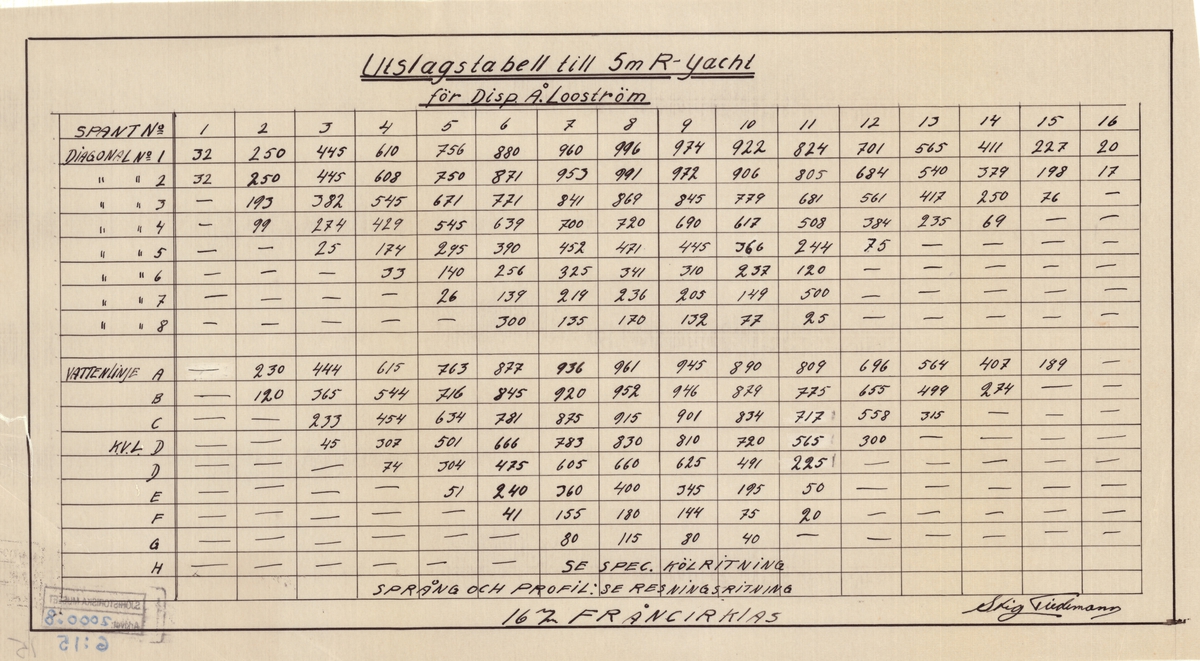 Utslagstabell till 5m R-Yacht
för Disp. Å. Looström
SPANT No 1 2 3 4 5 6 7 8 9 10 11 12 13 14 15 16
DIAGONAL No 1 32 250 445 610 756 880 960 996 974 922 824 701 565 411 227 20
" " 2 32 250 445 608 750 871 953 991 972 906 805 684 540 379 198 17
" " 3 — 193 382 545 671 771 841 869 845 779 681 561 417 250 76 —
" " 4 — 99 274 429 545 639 700 720 690 617 508 384 235 69 — —
" " 5 — — 25 174 295 390 452 471 445 366 244 75 — — — —
" " 6 — — — 33 140 256 325 341 310 237 120 — — — — —
" " 7 — — — — 26 139 219 236 205 149 500 — — — — —
" " 8 — — — — — 300 135 170 132 77 25 — — — — —
VATTENLINJE A — 230 444 615 763 877 936 961 945 890 809 696 564 407 189 —
B — 120 365 544 716 845 920 952 946 879 775 655 499 274 — —
C — — 233 454 634 781 875 915 901 834 717 558 315 — — —
K.V.L D — — 45 307 501 666 783 830 810 720 565 300 — — — —
D — — — 74 304 475 605 660 625 491 225 — — — — —
E — — — — 51 240 360 400 345 195 50 — — — — —
F — — — — — 41 155 180 144 75 20 — — — — —
G — — — — — — 80 115 80 40 — — — — — —
H — — — — — — SE SPEC. KÖLRITNING
SPRÅNG OCH PROFIL: SE RESNINGSRITNING
Stig Tiedemann
SJÖHISTORISKA MUSEET
2000:8
6:15
15